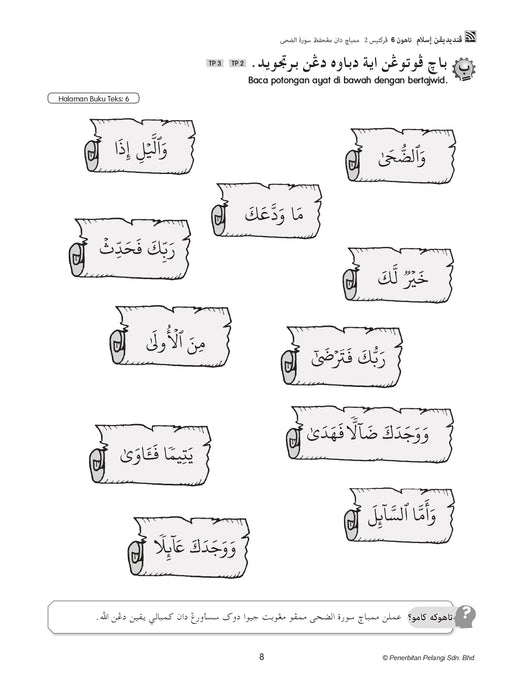 ڤنديديقن إسلام تاهون 6 ڤركتيس 2 ممباچ دان مڠحفظ سورة الضحى
باچ ڤوتوڠن اية دباوه دڠن برتجويد. TP 2 TP 3
Baca potongan ayat di bawah dengan bertajwid.
Halaman Buku Teks: 6
وَٱلضُّحَىٰ
وَٱلَّيْلِ إِذَا
مَا وَدَّعَكَ
رَبِّكَ فَحَدِّثْ
خَيْرٌ لَّكَ
مِنَ ٱلْأُولَىٰ
رَبُّكَ فَتَرْضَىٰٓ
وَوَجَدَكَ ضَآلًّا فَهَدَىٰ
يَتِيمًا فَـَٔاوَىٰ
وَأَمَّا ٱلسَّآئِلَ
وَوَجَدَكَ عَآئِلًا
تاهوكه كامو؟ عملن ممباچ سورة الضحى ممڤو مڠوبت جيوا دوک سساورڠ دان كمبالي يقين دڠن الله.
8
© Penerbitan Pelangi Sdn. Bhd.